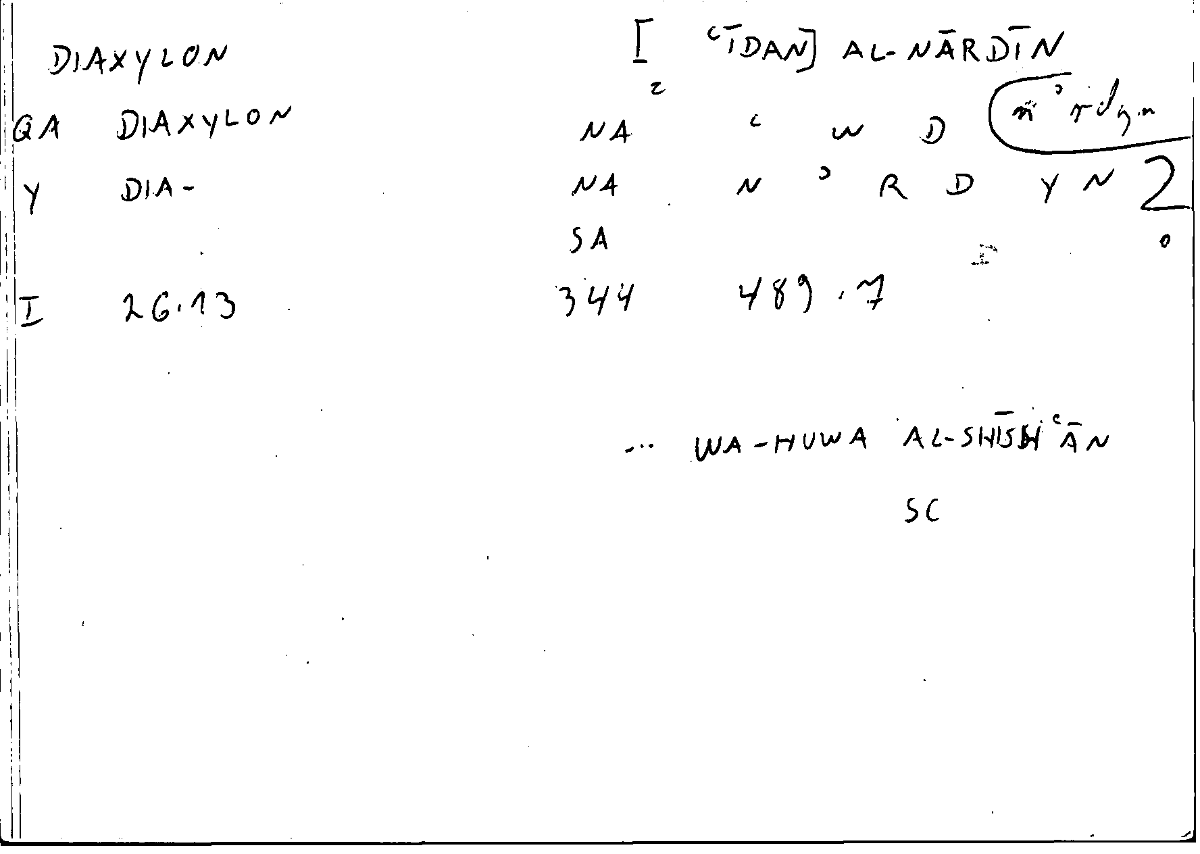 DIAXYLON [ ʿĪDAN] AL-NĀRDĪN
2
QA DIAXYLON NA ʿ W D nʾrdyn
Y DIA- NA N ʾ R D Y N 2
SA
I 26.13 344 489.7
... WA-HUWA AL-SHĪSHʿĀN
SC